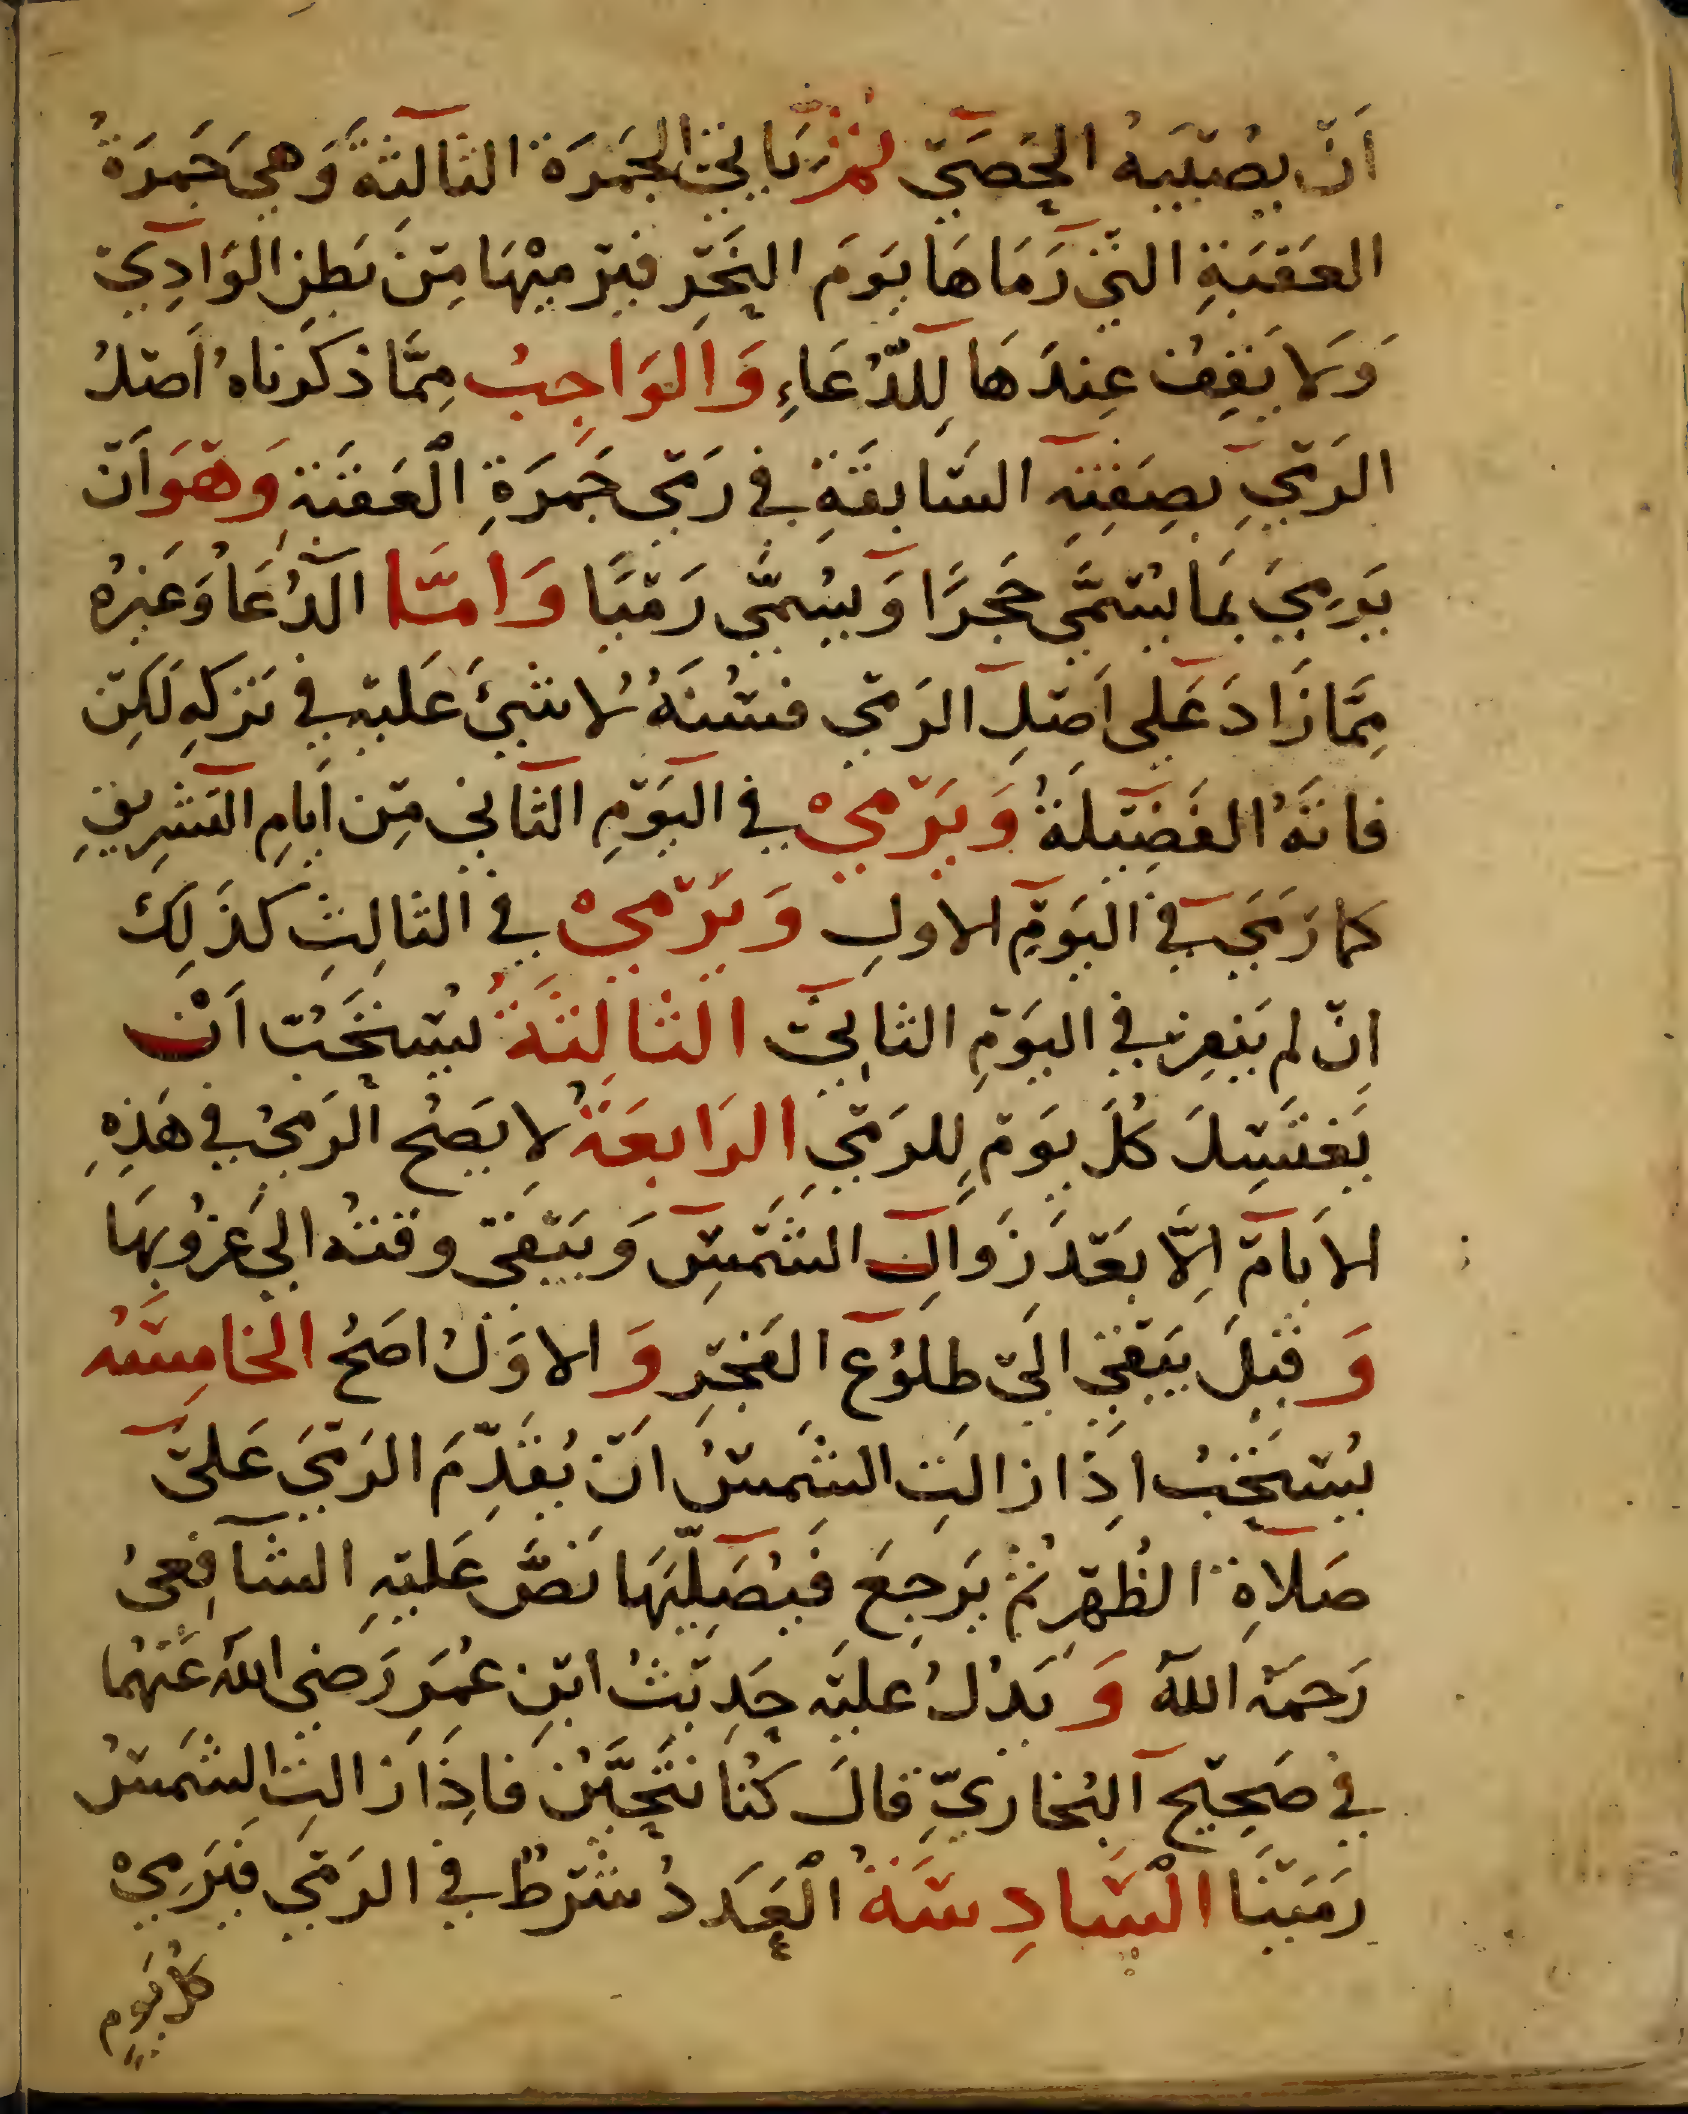 اَنْ يصُيْبَهُ الحَصَىْ ثمَّ يَاتِي الجَمرَة الثالثِةَ وَهىَ جَمرَةُ
العَقَبَةِ التَّي رَمَاهَا يوَمَ النَحْرِ فيَرْميْهَا مِنْ بَطنِ الوَادِيْ
وَلا يَقِفُ عِندَهَا لِلدُّعَاءِ وَالوَاجِبُ مِمَّا ذكَرناهُ اَصْلُ
الرَمْيِ بصِفَتِهِ السَّابقَةِ في رَمْي جَمرَةِ الْعَقَبَة وَهْوَ اَنْ
يَرمِيَ بمَا يُسْمَّي حَجَرًا وَيسُمَّي رَمْيًا وَامَّا الدُعَا وَغَيرُه
مِمَّا زَادَ عَلى اَصْلِ الرَمْي فسْنُةَ لا شَيْئَ عَليْه في تَركِهِ لكِنْ
فاتَهُ الفَضِيْلَةُ وَيَرْمِيْ في اليَوْمِ الثَاني مِنْ اَيامِ التَشرِيقِ
كما رَمَى في اليَوْمِ الاولِ وَيَرْمِيْ في الثالِثِ كذَلِكَ
اِنْ لم يَنفِر في اليَوْمِ الثانِيْ الثالِثَةُ يُسْتحَبُ اَنْ
يَغتَسِلَ كُلَ يوَمْ لِلرَمْيِ الرَابعَةُ لا يَصِحُ الرَميُ في هَذِهِ
الاَيامْ اِلَّا بعَدَ زَوَالِ الشَمْسِ وَيَبْقىَ وقتهُ الىَ غرُوُبهَا
وَ قيْلَ يَبْقىَ اليَ طلوُع الفَجْرِ وَ الاوَلُ اصَحُ الخامِسَهُ
يُسْتحَبُ اِذَا زالتِ الشَمسْ اَنْ يُقَدّمَ الرَمْيَ عَلىْ
صَلاَةِ الظُهْرِ ثمُ يَرجِعَ فيُصَلِّيَهَا نَصَّ عَليْهِ الشَافِعىُ
رَحمَهُ اللهُ وَ يَدُلُ عَليْه حَدِيْثُ ابْنِ عمُرَ رَضى اللهُ عَنهُما
في صَحِيْحِ البُخَاريِّ قالَ كُنا نتَحَيَّنُ فاِذَا زالتِ الشَمسُ
رَمَيْنَا السَّادِسَةُ الْعَدَدُ شَرْطٌ في الرَمْي فيَرَمِيْ
كل يَومٍ